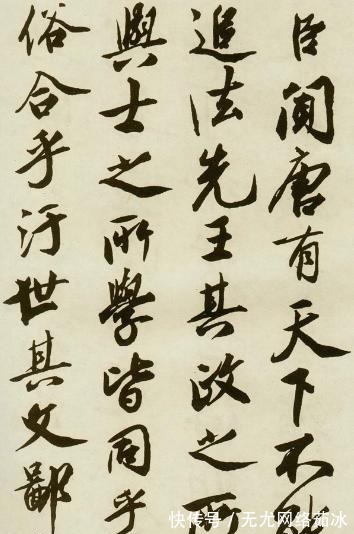 臣闻唐有天下不能
追法先王其政之所
興士之所學皆同乎
俗合乎汙世其文鄙
快传号/无尤网络茹冰